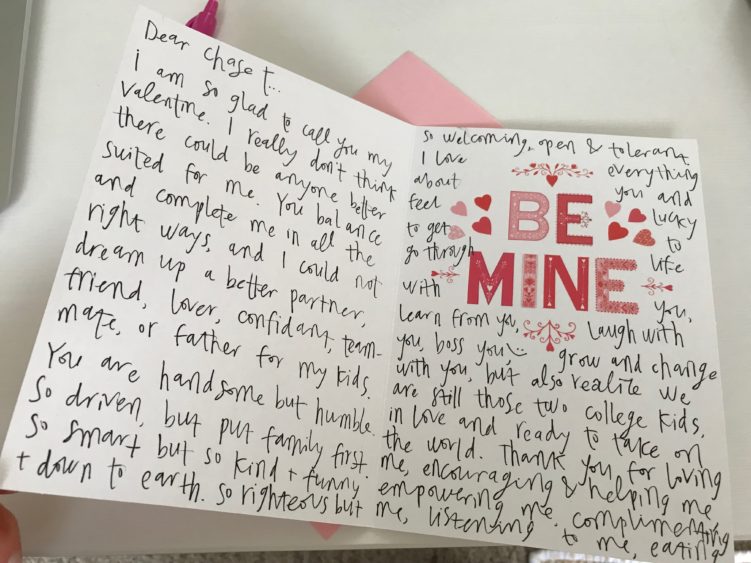 Dear Chase T...
i am so glad to call you my
valentine. I really don't think
there could be anyone better
suited for me. You balance
and complete me in all the
right ways, and I could not
dream up a better partner,
friend, lover, confidant, team-
mate, or father for my kids.
You are handsome but humble.
So driven, but put family first.
So smart but so kind + funny
+ down to earth. So righteous but
so welcoming, open & tolerant
I love everything
about you and
feel lucky
to get to
go through life
with you,
learn from you, laugh with
you, boss you, grow and change
with you, but also realize we
are still those two college kids,
in love and ready to take on
the world. Thank you for loving
me, encouraging & helping me
empowering me. complimenting
me, listening to me, eating
BE
MINE